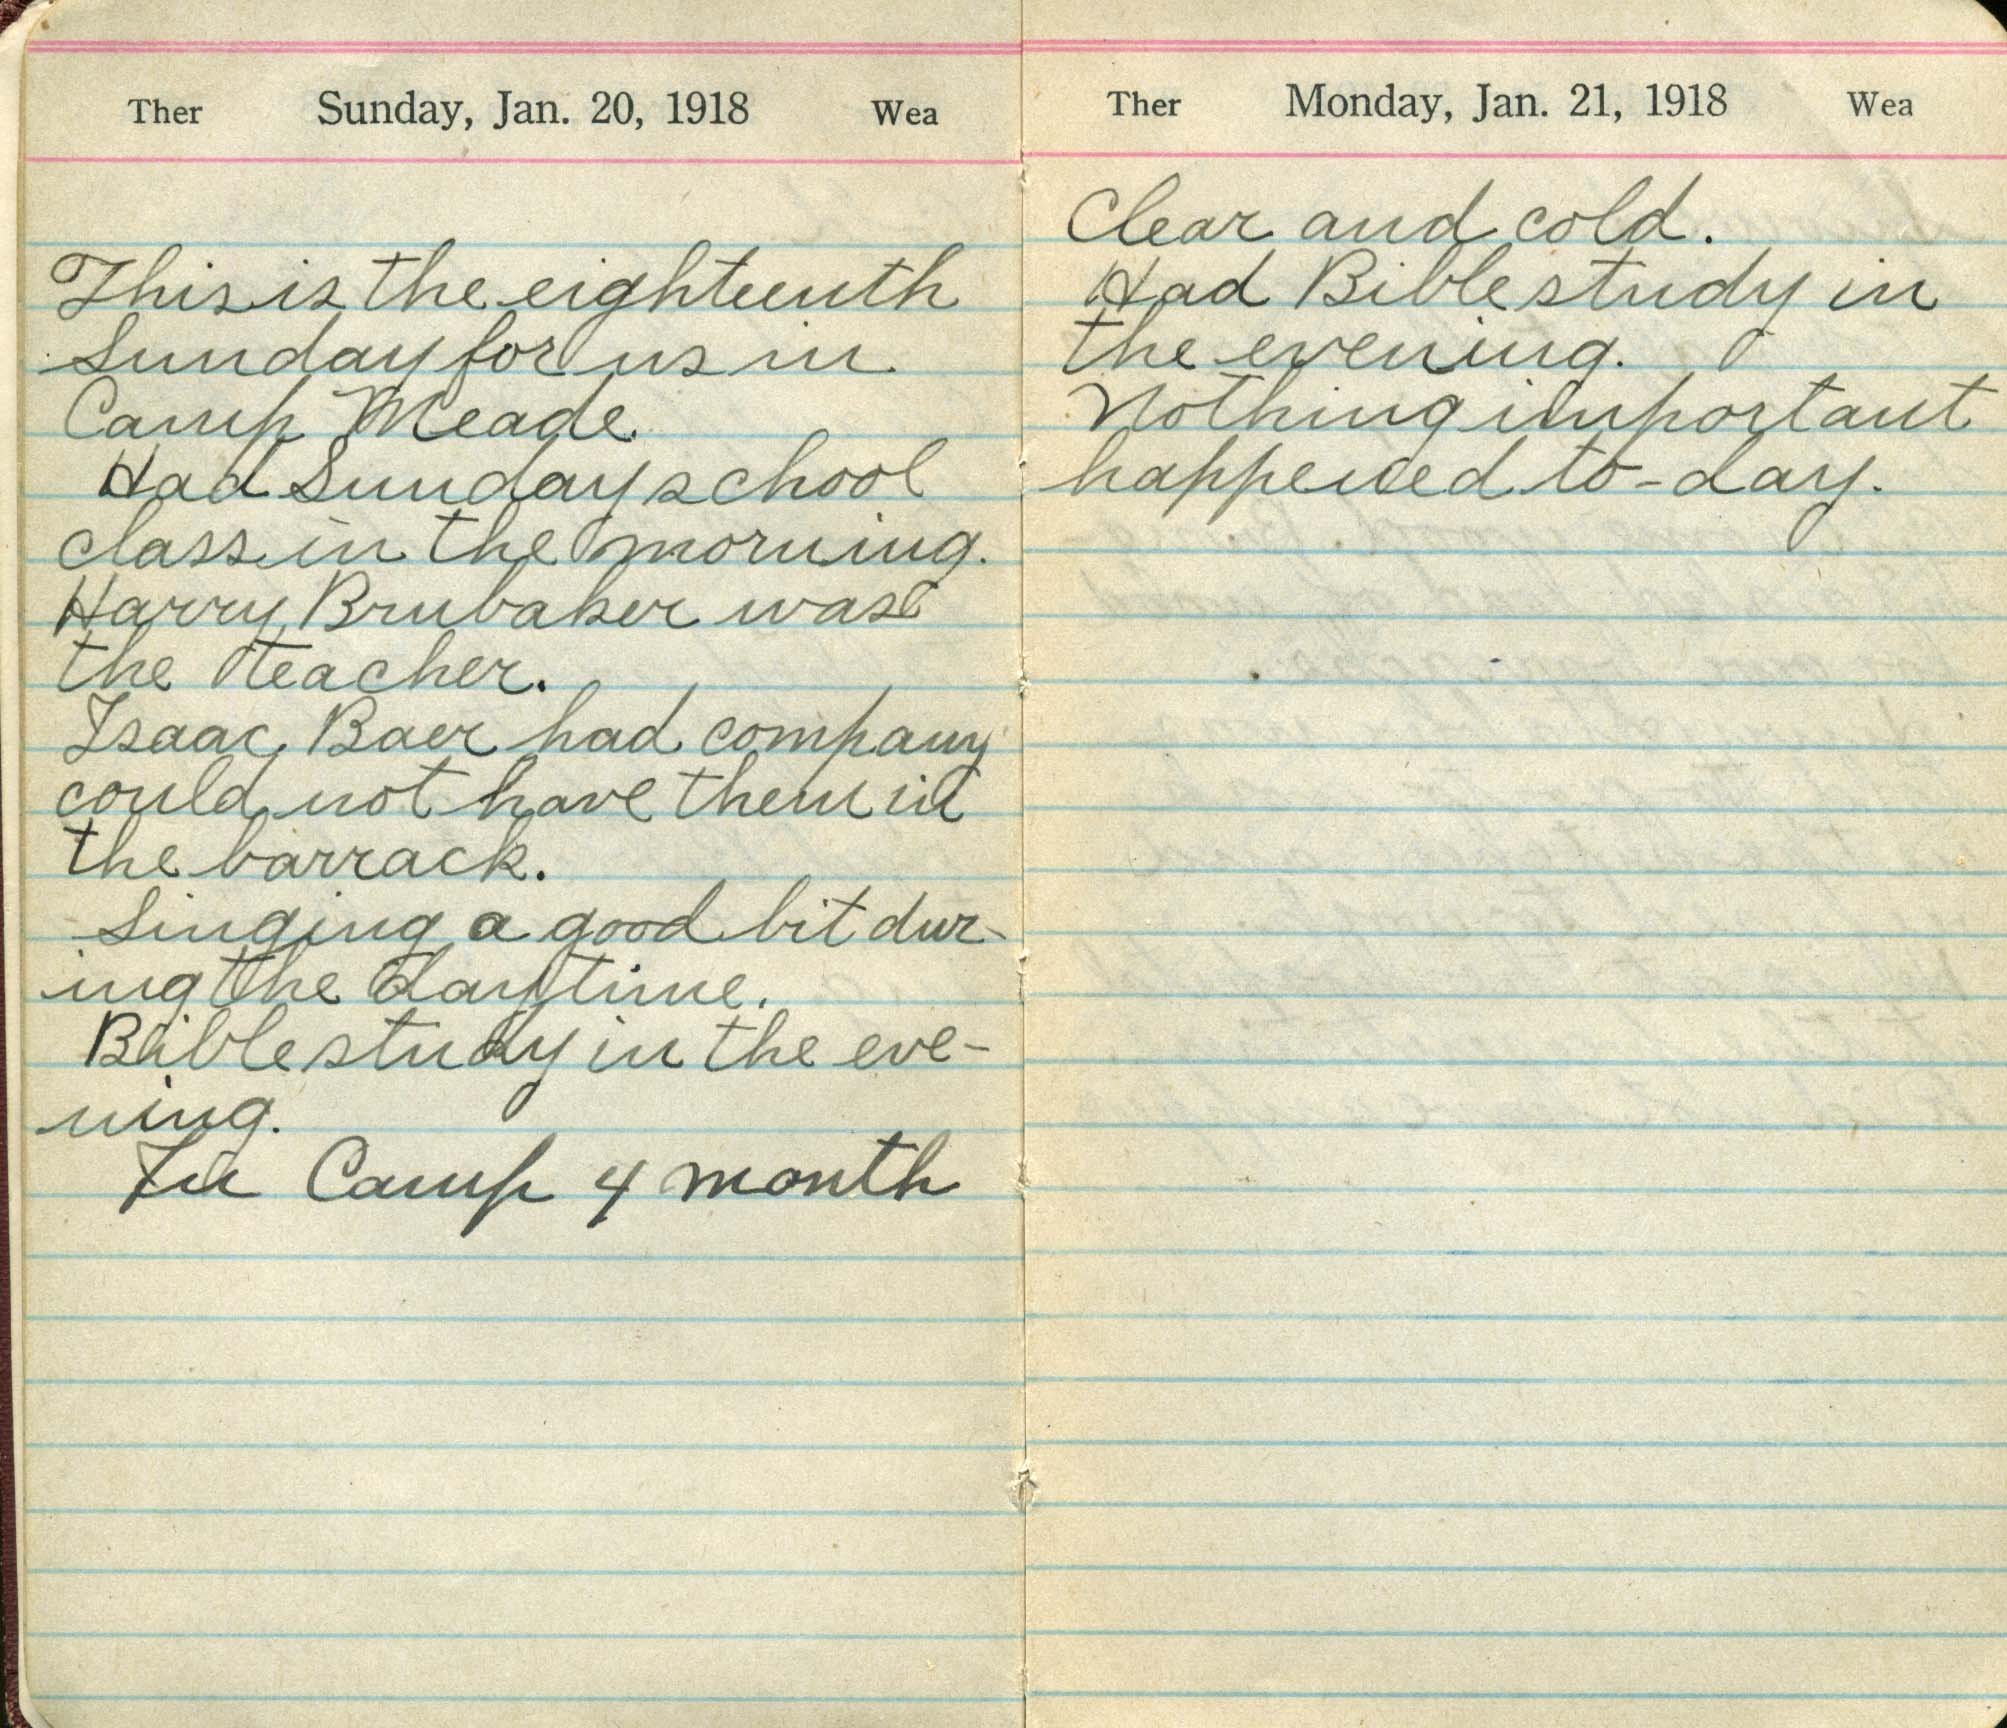 Ther Sunday, Jan. 20, 1918 Wea
This is the eighteenth
Sunday for us in
Camp Meade.
Had Sunday school
class in the morning.
Harry Brubaker was
the teacher.
Isaac Baer had company
could not have them in
the barrack.
Singing a good bit dur-
ing the daytime.
Bible study in the eve-
ning.
In Camp 4 month
Ther Monday, Jan. 21, 1918 Wea
Clear and cold.
Had Bible study in
the evening.
Nothing important
happened to-day.